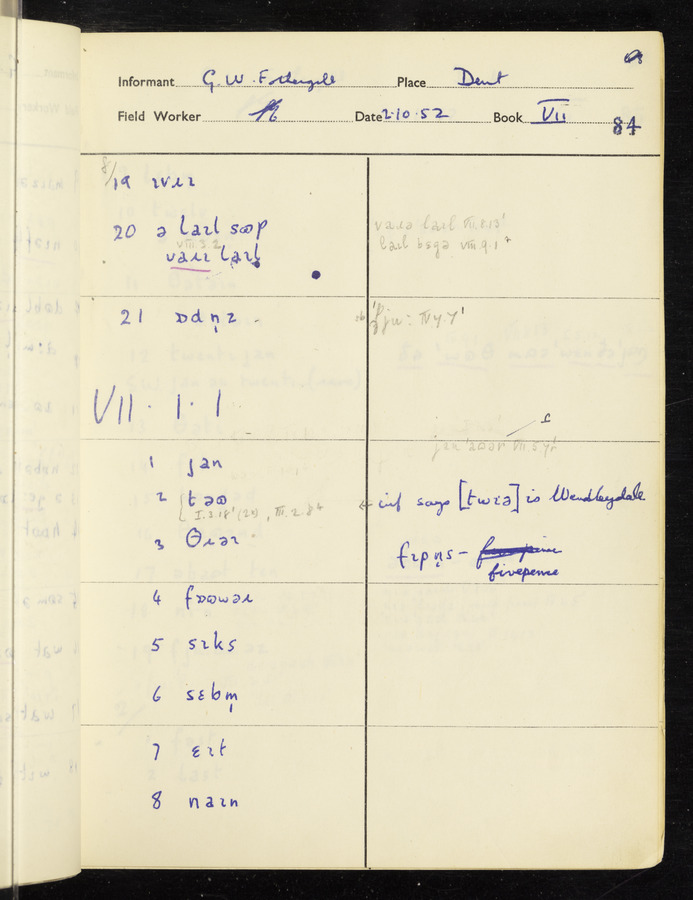 Informant G. W. Fothergill Place Dent
Field Worker Date 2·10·52 Book VII
84
8/19 ɪvɪɪ
20 ə laɪl sʊp
VIII.3.2
vaɪɪ laɪl
vaɪə laɪl VIII.8.13'
laɪl bɪgə VIII.9.1
21 ɒdn̩z
VII. 1. 1
1 jan
jan VII.5.4
2 təʊ
I.3.18' (20), III.2.8
← inf says [twɪə] is Wendleydale
3 θɪəɪ
fɪpn̩s - fivepence
4 fɒʊwəɪ
5 sɪks
6 sɛbm̩
7 ɛɪt
8 naɪn